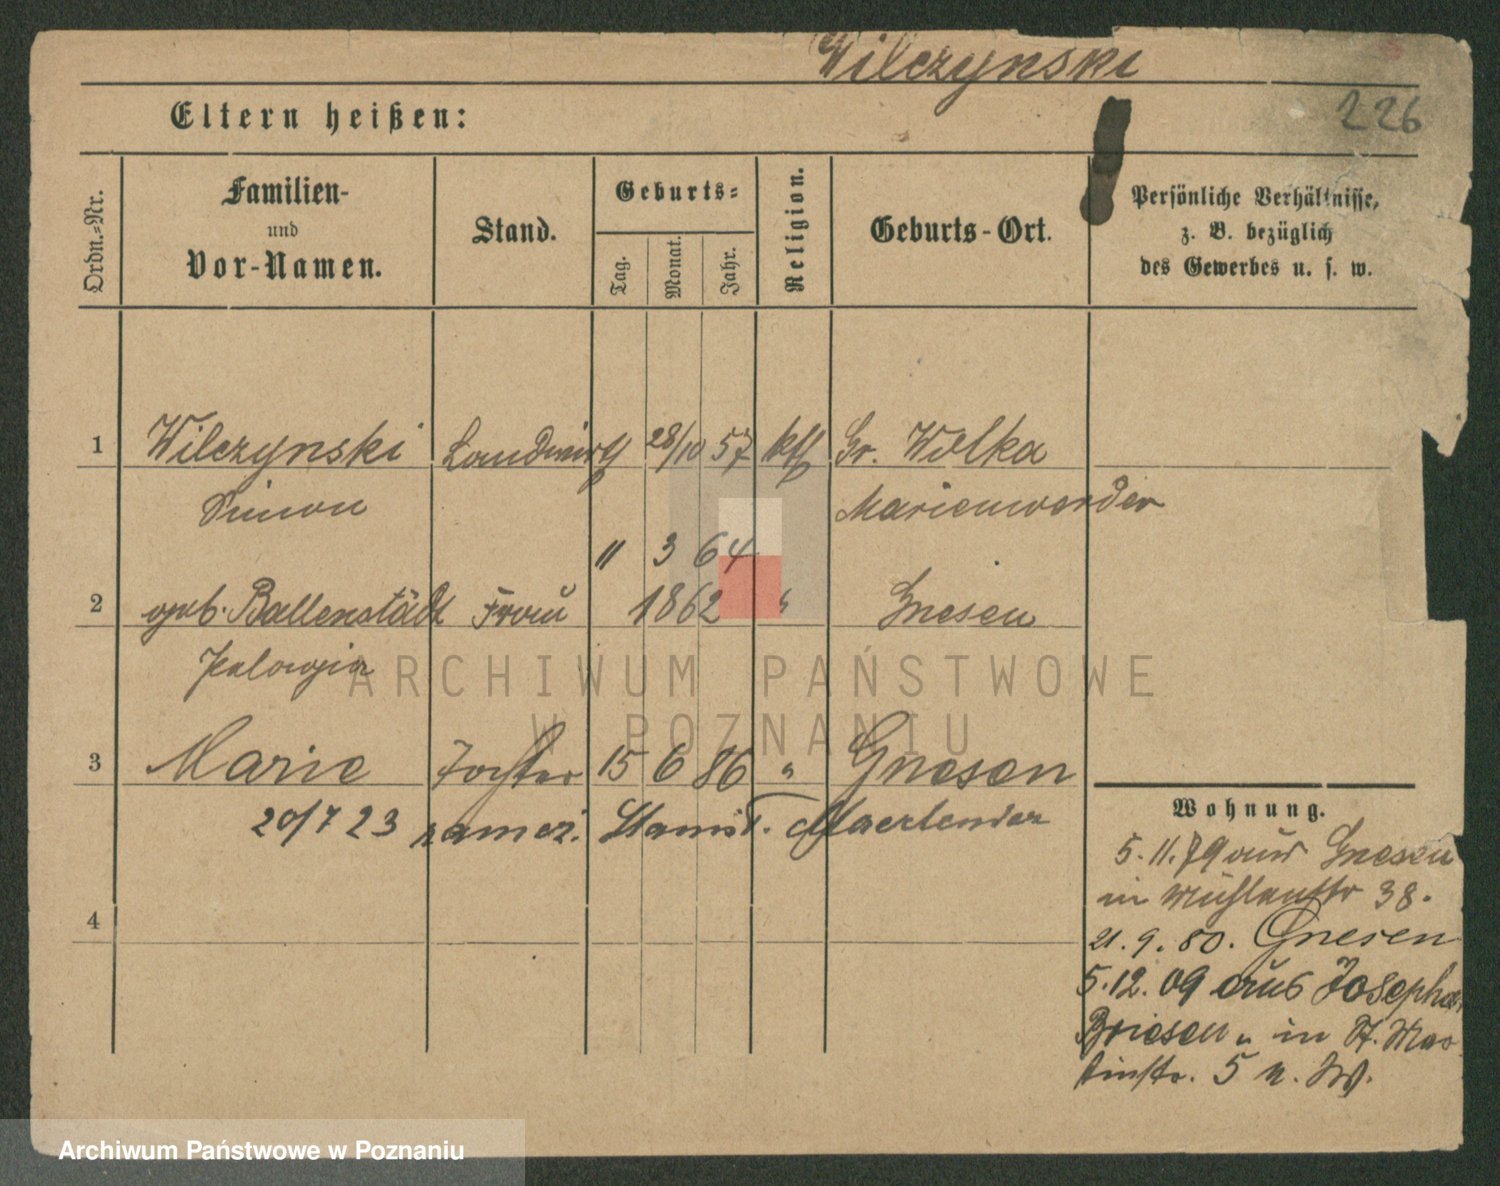 Wilczynski
226
Eltern heißen:
Ordn.-Nr.
Familien- und Vor-Namen.
Stand.
Geburts-
Tag.
Monat.
Jahr.
Religion.
Geburts-Ort.
Persönliche Verhältnisse,
z. B. bezüglich
des Gewerbes u. s. w.
1 Wilczynski Landwirth 28/10 57 kth Gr. Wolka
Simon Marienwerder
11 3 64
2 geb. Ballenstädt Frau 1862 " Gnesen
Pelagia
3 Marie Tochter 15 6 86 " Gnesen
20/7 23 zamęż. Stanisł. Maerlender
4
Wohnung.
5. 11. 79 aus Gnesen
in Mühlenstr 38.
21. 9. 80. Gnesen
5. 12. 09 aus
Briesen in St. Mar
tinstr. 5
ARCHIWUM PAŃSTWOWE
W POZNANIU
Archiwum Państwowe w Poznaniu